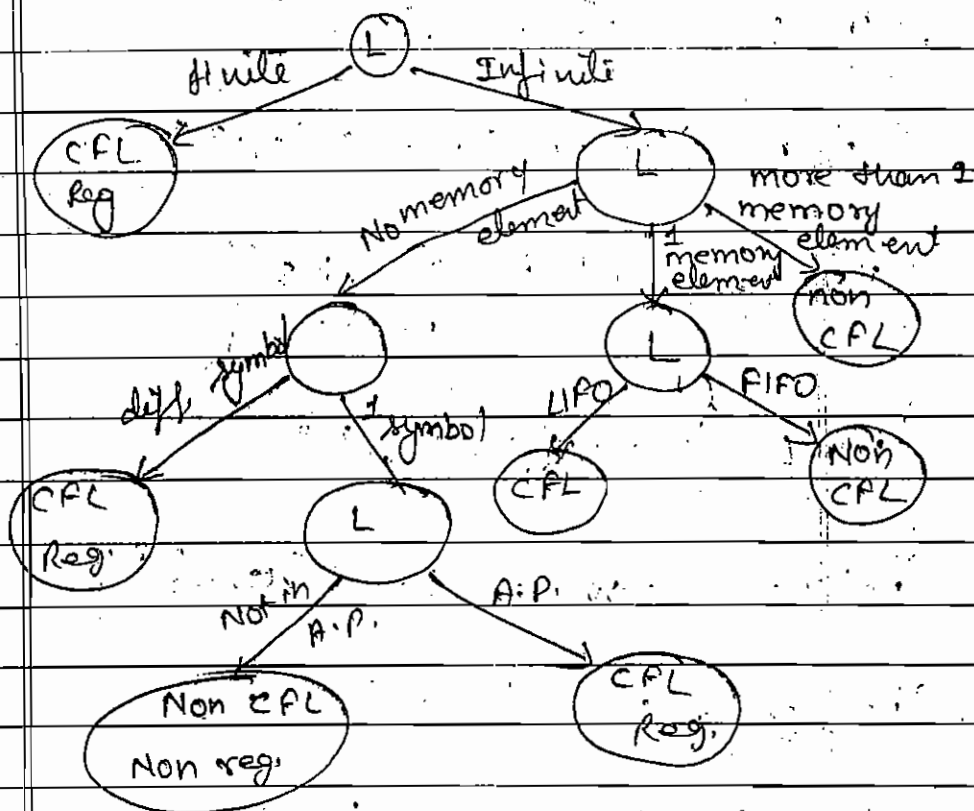 L
finite
Infinite
CFL
Reg
L
No memory
element
1
memory
element
more than 1
memory
element
non
CFL
diff. symbol
1 symbol
L
LIFO
FIFO
CFL
Non
CFL
CFL
Reg.
L
Not in
A.P.
A.P.
Non CFL
Non reg.
CFL
Reg.